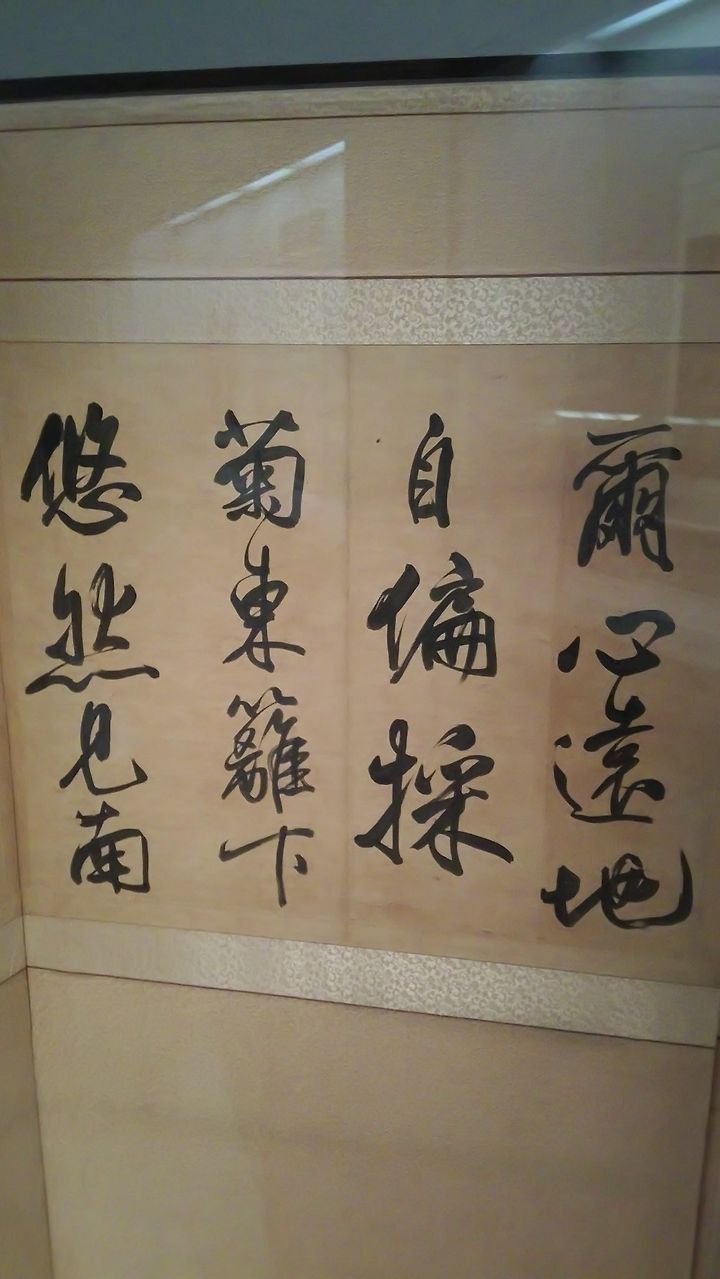 爾心遠地
自偏採
菊東籬下
悠然見南